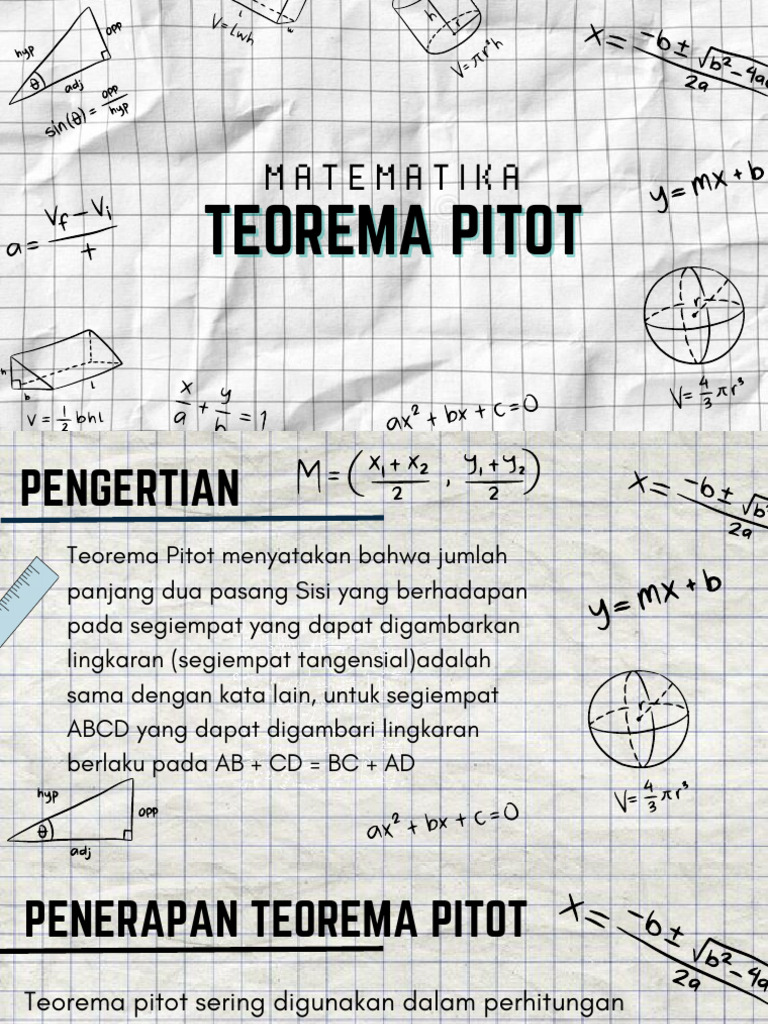 hyp
opp
θ
adj
sin(θ) = opp/hyp
l
w
V = Lwh
h
r
V = πr²h
x = -b ± √b² - 4ac
2a
MATEMATIKA
TEOREMA PITOT
y = mx + b
a = Vf - Vi
t
r
V = 4/3 πr³
h
b
l
V = 1/2 bhl
x/a + y/h = 1
ax² + bx + c = 0
PENGERTIAN
M = (x₁ + x₂ / 2 , y₁ + y₂ / 2)
x = -b ± √b²
2a
Teorema Pitot menyatakan bahwa jumlah
panjang dua pasang Sisi yang berhadapan
pada segiempat yang dapat digambarkan
lingkaran (segiempat tangensial)adalah
sama dengan kata lain, untuk segiempat
ABCD yang dapat digambari lingkaran
berlaku pada AB + CD = BC + AD
y = mx + b
r
V = 4/3 πr³
hyp
opp
θ
adj
ax² + bx + c = 0
PENERAPAN TEOREMA PITOT
x = -b ± √b² - 4a
2a
Teorema pitot sering digunakan dalam perhitungan